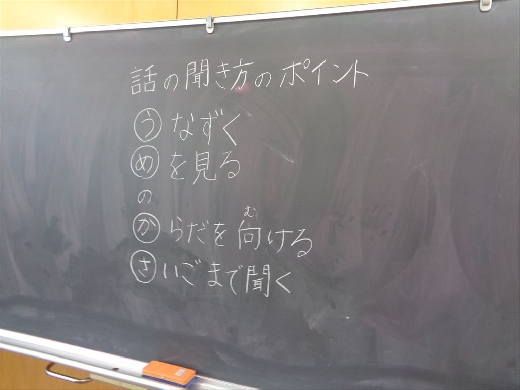 話の聞き方のポイント
うなずく
めを見る
の
からだを向ける
さいごまで聞く